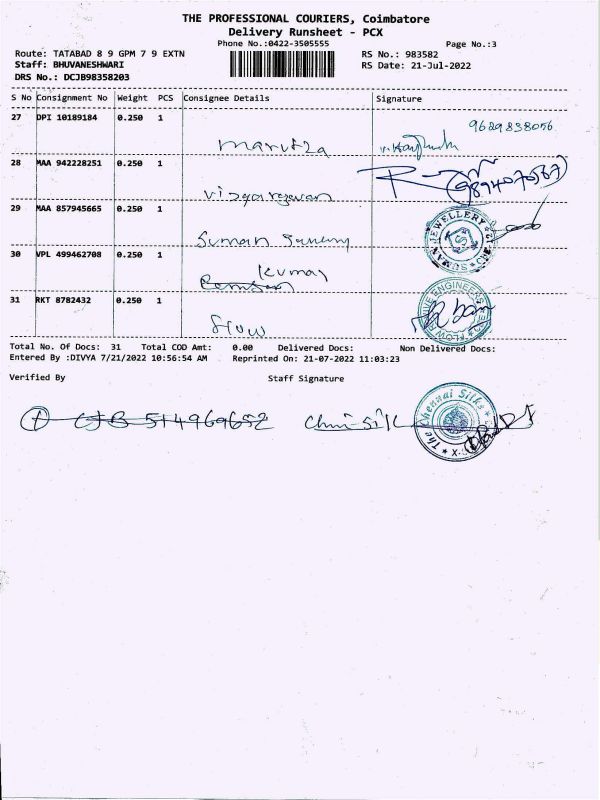 THE PROFESSIONAL COURIERS, Coimbatore
Delivery Runsheet - PCX
Phone No.:0422-3505555
Page No.:3
Route: TATABAD 8 9 GPM 7 9 EXTN
RS No.: 983582
Staff: BHUVANESHWARI
RS Date: 21-Jul-2022
DRS No.: DCJB98358203
S No Consignment No Weight PCS Consignee Details Signature
27 DPI 10189184 0.250 1 9629838056
28 MAA 942228251 0.250 1
29 MAA 857945665 0.250 1 Suman SUMAN JEWELLERY
30 VPL 499462708 0.250 1 Kumar
31 RKT 8782432 0.250 1 Flow ENGINEERS
Total No. Of Docs: 31 Total COD Amt: 0.00 Delivered Docs: Non Delivered Docs:
Entered By :DIVYA 7/21/2022 10:56:54 AM Reprinted On: 21-07-2022 11:03:23
Verified By Staff Signature
CJB 514969652 The Chennai Silks